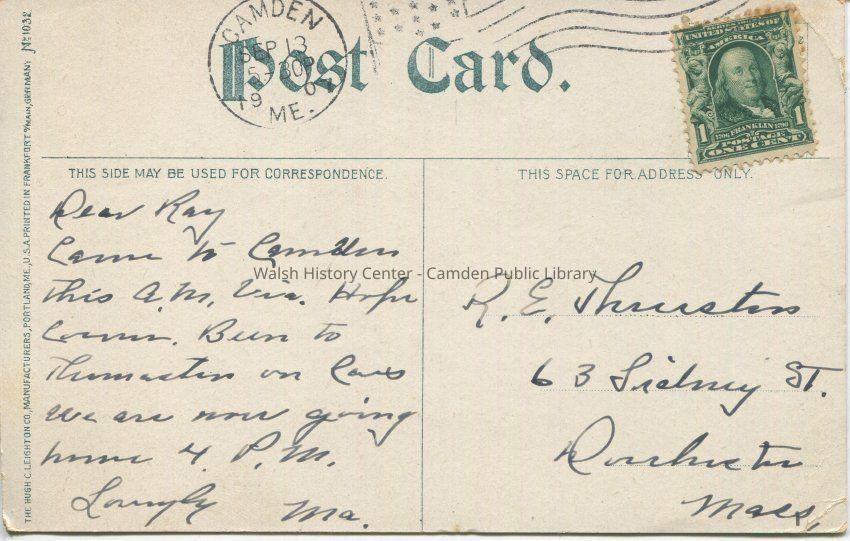 CAMDEN
SEP 13
5-30P
19 07
ME.
Post Card.
UNITED STATES OF
AMERICA
1 1
1706 FRANKLIN 1790
POSTAGE
ONE CENT
THIS SIDE MAY BE USED FOR CORRESPONDENCE.
Dear Ray
Came to Camden
this A.M. Via. Hope
Corner. Been to
Thomaston on Cars
We are now going
home 4 P.M.
Lovingly Ma.
THIS SPACE FOR ADDRESS ONLY.
R. E. Thurston
63 Sidney ST.
Dorchester
Mass,
THE HUGH C. LEIGHTON CO., MANUFACTURERS, PORTLAND, ME., U.S.A. PRINTED IN FRANKFORT o/MAIN, GERMANY No 1032
Walsh History Center - Camden Public Library